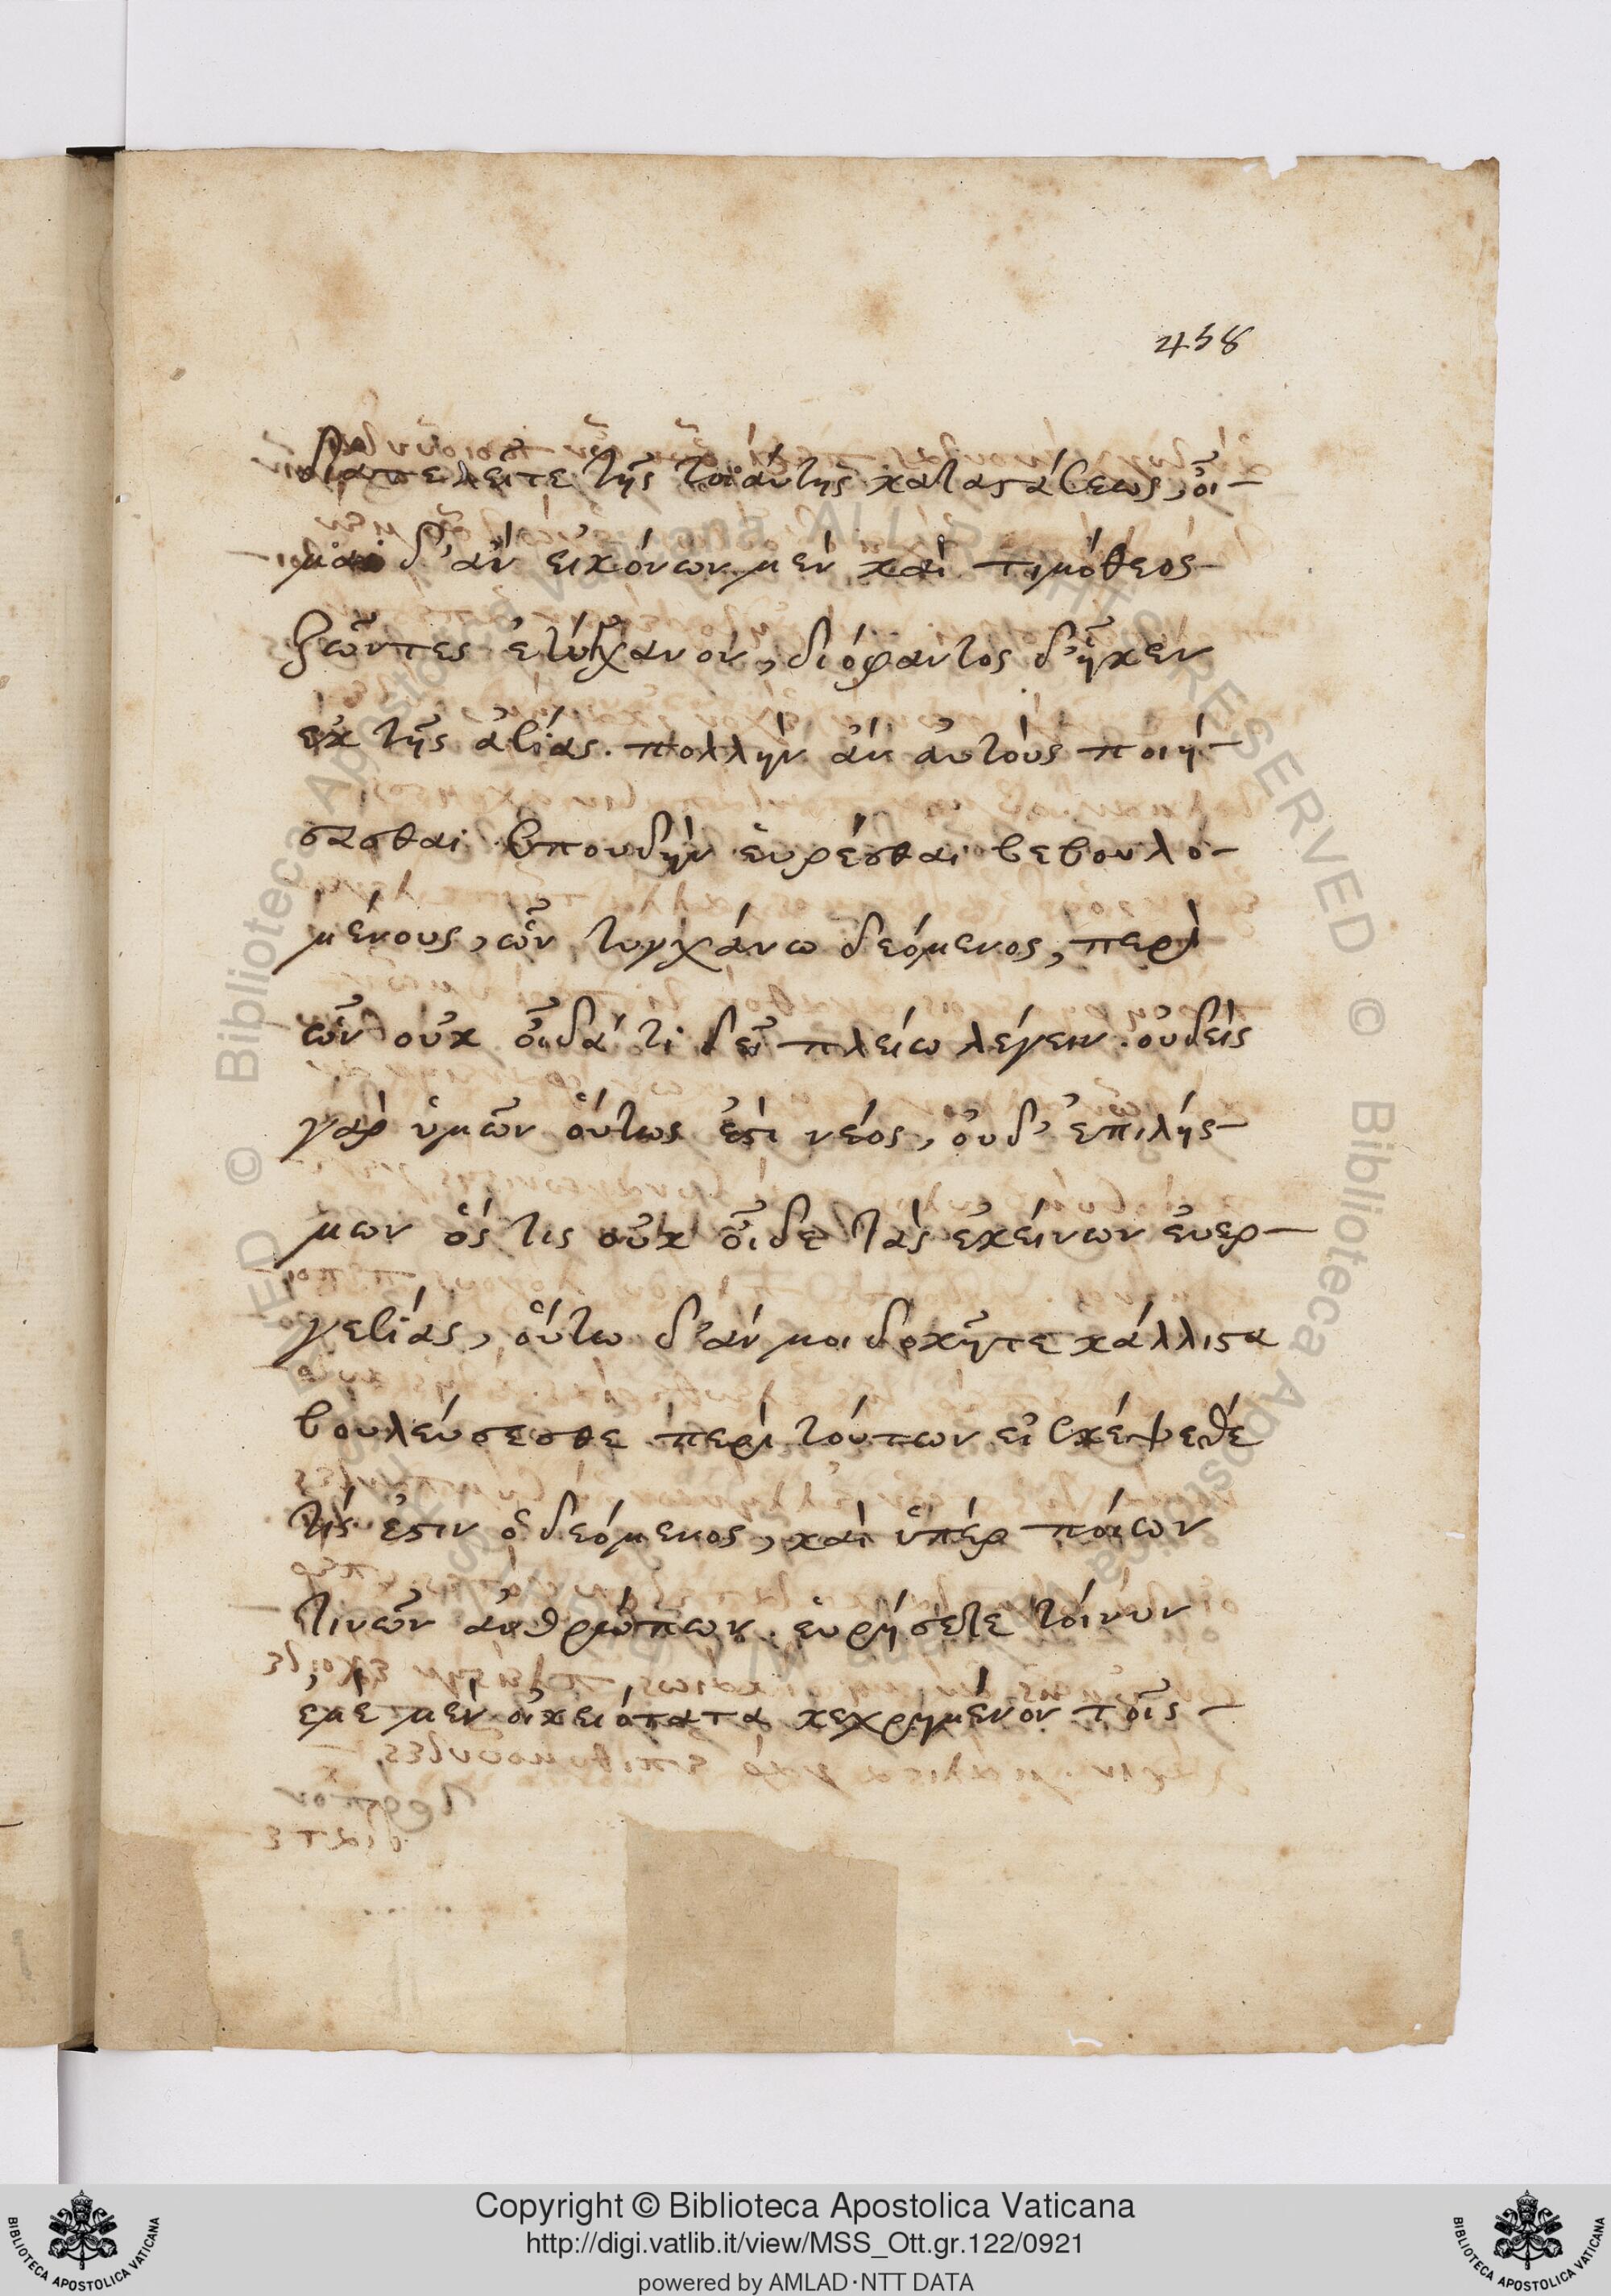 458
διατελεῖτε τῆς τοιάυτης καταστάσεως, οἶ-
μαι δ' ἂν εἰ κόνων μὲν καὶ τιμόθεος
ζῶντες ἐτύγχανον, διόφαντος δ' ἧκεν
ἐκ τῆς ἀσίας. πολλὴν ἂν ἀυτοὺς ποιή-
σασθαι σπουδὴν ἑυρέσθαι βεβουλο-
μένους, ὧν τυγχάνω δεόμενος, περὶ
ὧν οὐκ οἶδά τι δεῖ πλείω λέγειν. ὀυδεὶς
γὰρ ὑμῶν ὅυτως ἐστὶ νέος, ὀυδ' ἐπιλήσ-
μων ὅς τις οὐκ οἶδε τὰς ἐκείνων ἐυερ-
γεσίας, ὅυτω δ' ἄν μοι δοκῆτε κάλλιστα
βουλεύσεσθε περὶ τούτων εἰ σκέψεσθέ
τίς ἐστιν ὁ δεόμενος, καὶ ὑπὲρ ποίων
τινῶν ἀνθρώπων. ἑυρήσετε τοίνυν
ἐμὲ μὲν οἰκειότατα κεχρημένον τοῖς
Copyright © Biblioteca Apostolica Vaticana
http://digi.vatlib.it/view/MSS_Ott.gr.122/0921
powered by AMLAD·NTT DATA
BIBLIOTECA APOSTOLICA VATICANA
BIBLIOTECA APOSTOLICA VATICANA